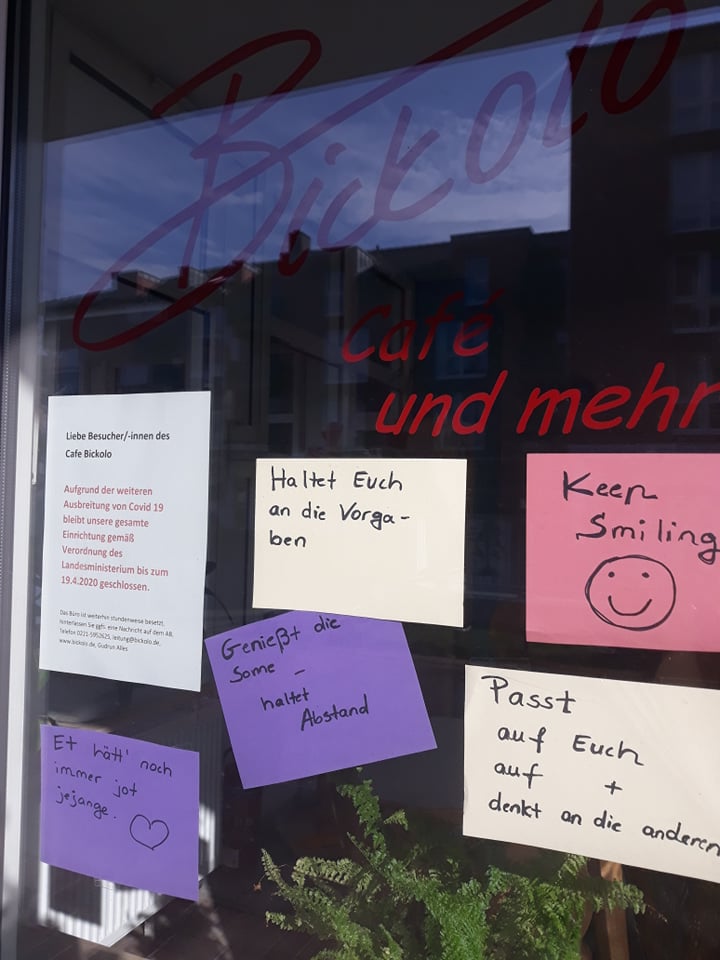 Bickolo
Café
und mehr
Liebe Besucher/-innen des
Cafe Bickolo
Aufgrund der weiteren
Ausbreitung von Covid 19
bleibt unsere gesamte
Einrichtung gemäß
Verordnung des
Landesministerium bis zum
19.4.2020 geschlossen.
Das Büro ist weiterhin stundenweise besetzt,
hinterlassen Sie ggfs. eine Nachricht auf dem AB,
Telefon 0221-5952625, leitung@bickolo.de,
www.bickolo.de, Gudrun Alles
Haltet Euch
an die Vorga-
ben
Keep
Smiling
Genießt die
Sonne -
haltet
Abstand
Passt
auf Euch
auf +
denkt an die anderen
Et hätt' noch
immer jot
jejange.